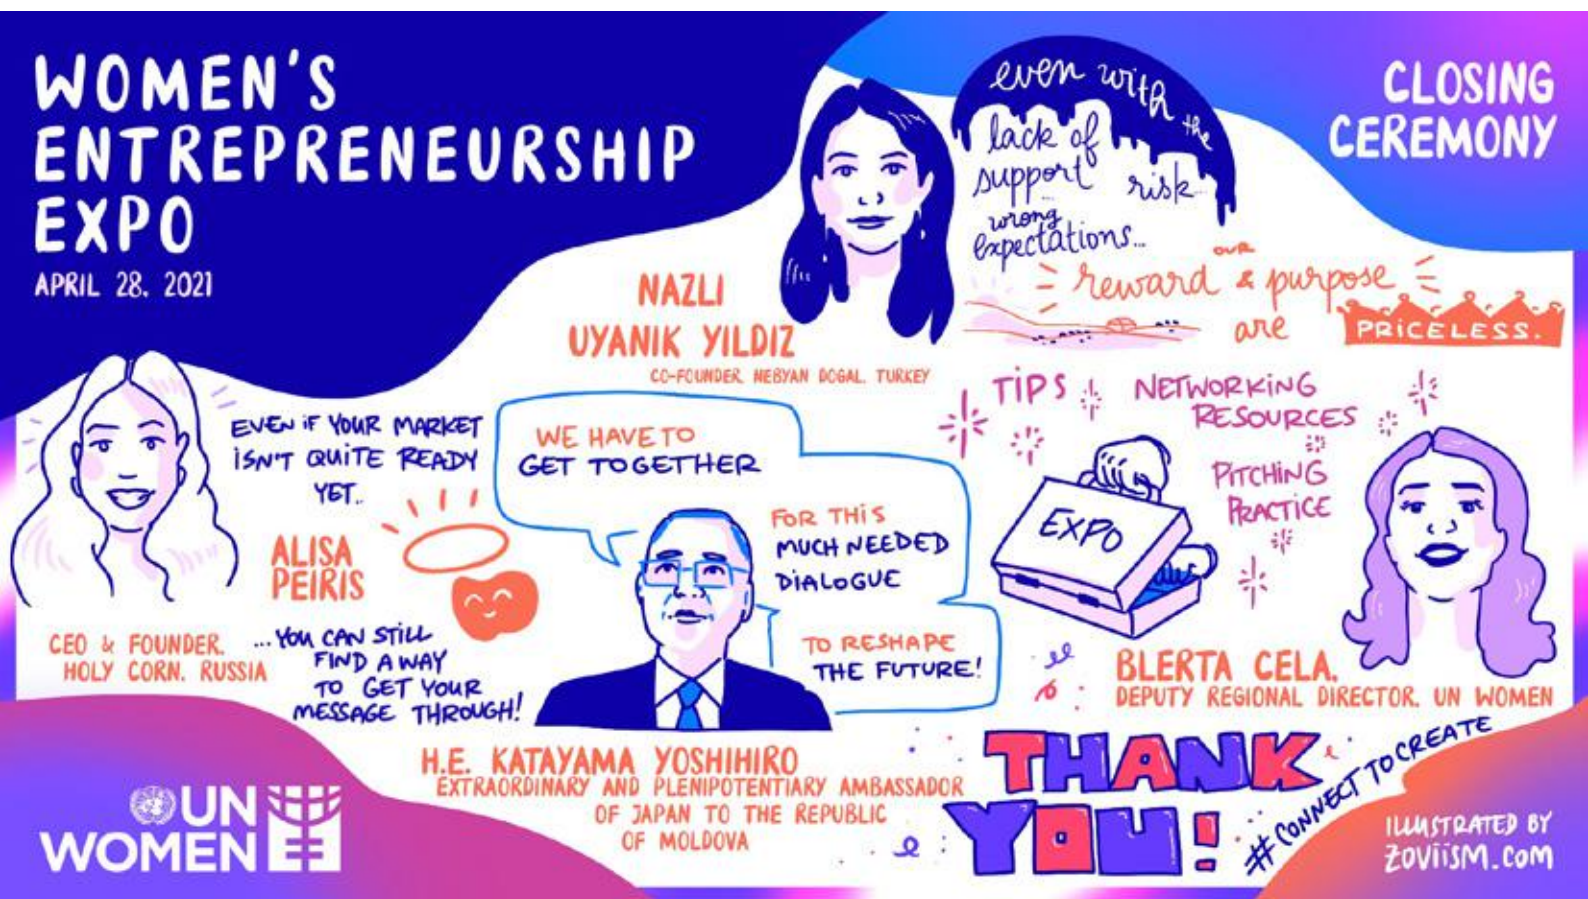 WOMEN'S
ENTREPRENEURSHIP
EXPO
APRIL 28. 2021
CLOSING
CEREMONY
even with the
lack of
support
risk...
wrong
expectations...
our
reward & purpose
are PRiCELESS.
NAZLI
UYANIK YILDIZ
CO-FOUNDER, HEBYAN DOGAL, TURKEY
EVEN iF YOUR MARKET
iSN'T QUiTE READY
YET..
ALISA
PEIRIS
CEO & FOUNDER.
HOLY CORN. RUSSIA
...YOU CAN STiLL
FiND A WAY
TO GET YOUR
MESSAGE THROUGH!
WE HAVE TO
GET TOGETHER
FOR THiS
MUCH NEEDED
DiALOGUE
TO RESHAPE
THE FUTURE!
H.E. KATAYAMA YOSHIHIRO
EXTRAORDINARY AND PLENIPOTENTIARY AMBASSADOR
OF JAPAN TO THE REPUBLIC
OF MOLDOVA
TiPS
NETWORKiNG
RESOURCES
PiTCHiNG
PRACTiCE
EXPO
BLERTA CELA.
DEPUTY REGIONAL DIRECTOR. UN WOMEN
THANK
YOU!
#CONNECT TO CREATE
UN
WOMEN
iLLUSTRATED BY
ZOViiSM.COM